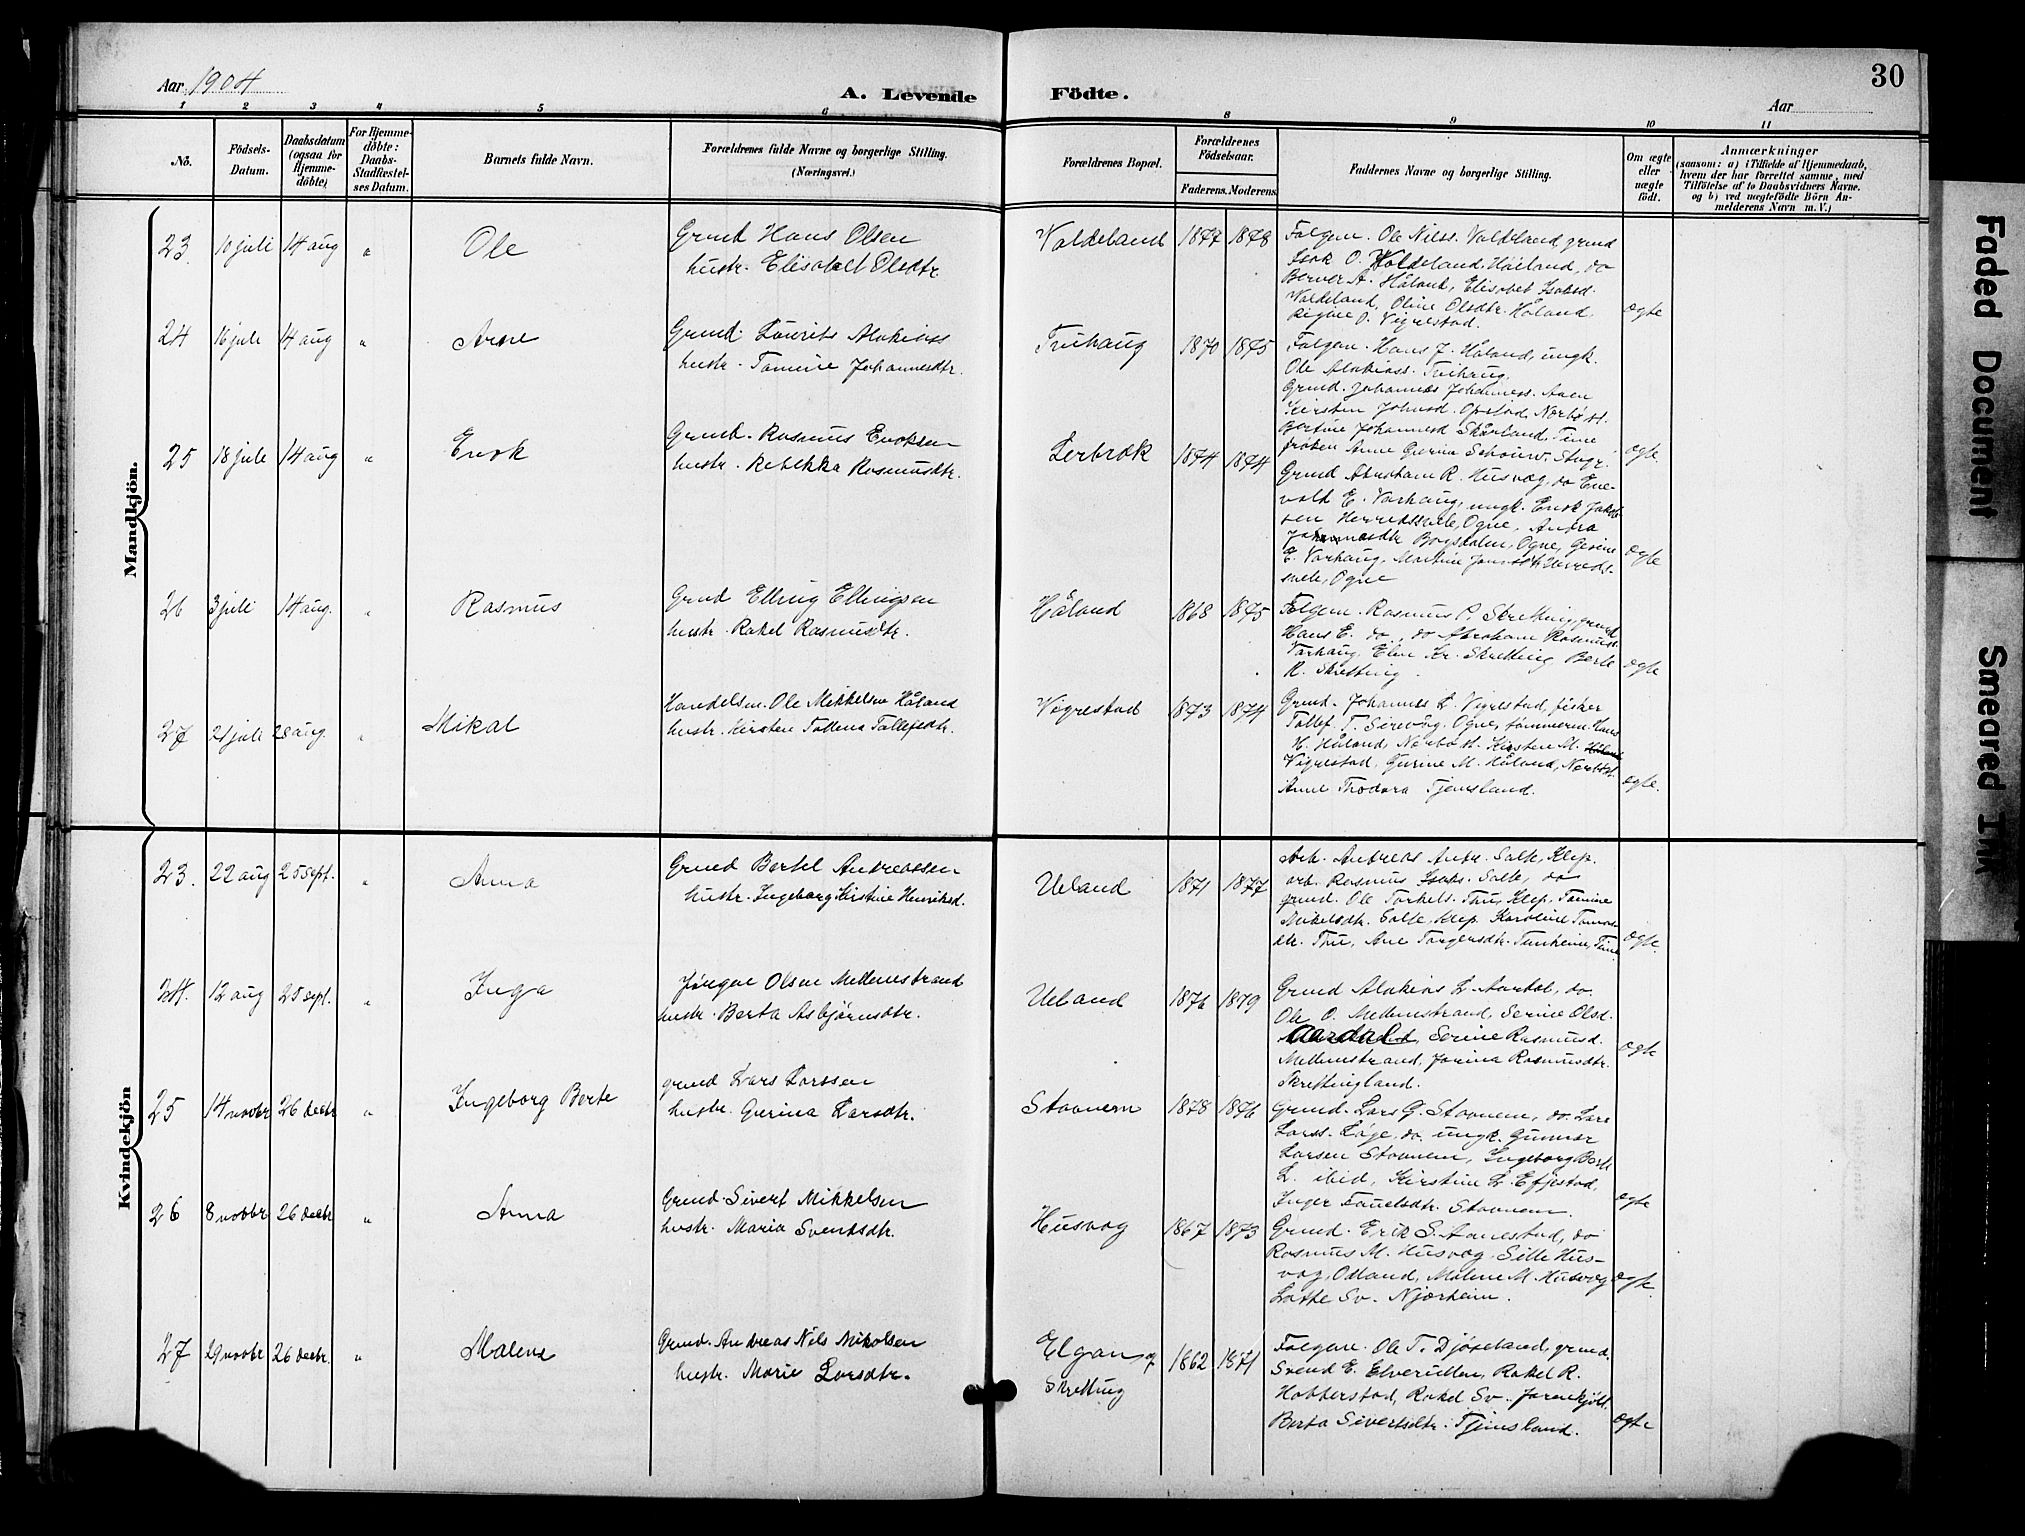 Aar 1904
A. Levende Födte.
30
Aar
1 2 3 4 5 6 8 9 10 11
Nö.
Födsels-Datum.
Daabsdatum (ogsaa for Hjemme-döbte)
For Hjemme-döbte: Daabs-Stadfæstel-ses Datum.
Barnets fulde Navn.
Forældrenes fulde Navne og borgerlige Stilling.
(Næringsvei.)
Forældrenes Bopæl.
Forældrenes Födselsaar.
Faderens. Moderens.
Faddernes Navne og borgerlige Stilling.
Om ægte eller uægte födt.
Anmærkninger
(saasom: a) i Tilfælde af Hjemmedaab,
hvem der har forrettet samme, med
Tilföielse af to Daabsvidners Navne.
og b) ved uægtefödte Börn An-
melderens Navn m. V.)
Mandkjön.
23 10 juli 14 aug " Ole
Grmd Hans Olsen
hustr. Elisabet Olsdtr.
Valdeland 1877 1878
Folgem. Ole Nilss. Valdeland, grmd
Isak O. Valdeland, Håland, do
Berver A. Håland, Elisabet Isaksd.
Valdeland, Oline Olsdtr. Håland,
Regine O. Vigrestad.
ægte
24 16 juli 14 aug " Arne
Grmd. Laurits Alakiass
hustr. Tomine Johannesdtr.
Tvihaug 1870 1875
Folgem. Hans J. Håland, ungk.
Ole Alakiass. Tvihaug,
Grmd. Johannes Johanness. Aaen
Kirsten Johnsd. Opstad, Nærbø st.
Bertine Johannesd Skårland, Time
frøken Anne Gurina Schouw. Stvgr.
ægte.
25 18 juli 14 aug " Enok
Grmd. Rasmus Enoksen
hustr. Rebekka Rasmusdtr.
Lerbrek 1874 1874
Grmd Abraham R. Husvæg, do Ene-
vald E. Varhaug, ungk. Enok Jakob-
sen Herredsvele, Ogne, Andrea
Johannesdtr Bogsdalen, Ogne, Gesine
E. Varhaug, Martine Jonasdtr Herreds-
vele, Ogne
ægte
26 3 juli 14 aug. " Rasmus
Grmd Elling Ellingsen
hustr. Rakel Rasmusdtr.
Håland 1868 1875
Folgem. Rasmus P. Skretting, grmd
Hans E. do, do Abraham Rasmuss.
Varhaug, Elen Kr. Skretting Berte
R. Skretting.
ægte
27 21 juli 28 aug. " Mikal
Handelsm. Ole Mikkelsen Håland
hustr. Kirsten Tallena Tallefsdtr.
Vigrestad 1873 1874
Grmd. Johannes L. Vigrestad, fisker
Tallef T. Sirevåg, Ogne, tømmerm. Hans
H. Håland, Nærbø st. Kirsten M. Håland
Vigrestad, Gurine M. Håland, Nærbø st.
Anne Thodora Tjemsland.
ægte.
Kvindekjön
23. 22 aug 25 sept. " Anna
Grmd Bertel Andreassen
hustr. Ingeborg Kirstine Henriksd.
Ueland 1871 1877
Arb. Andreas Andr. Salte, Klep.
arb. Rasmus Isaks. Salte, do
grmd. Ole Torkels. Thu, Klep, Tomine
Mikelsdtr. Salte, Klep. Karoline Tomas-
dtr. Thu, Ane Torgersdtr. Tunheim, Time
ægte.
24. 12 aug 25 sept. " Inga
Jørgen Olsen Mellemstrand
hustr. Berta Asbjørnsdtr.
Ueland 1876 1879
Grmd Alakias L. Aardal, do.
Ole O. Mellemstrand, Serine Olsd.
Aardal, Serine Rasmusd.
Mellemstrand, Jorina Rasmusdtr.
Skrettingland.
ægte
25 14 novbr 26 decbr " Ingeborg Berte
grmd Lars Larssen
hustr. Gurina Larsdtr.
Stavnem 1878 1876
Grmd. Lars G. Stavnem, do. Lars
Larss. Løge, do. ungk. Gunnar
Larsen Stavnem, Ingeborg Berte
L. ibid, Kirstine L. Efjestad,
Inger Tonetsdtr. Stavnem.
ægte
26 8 novbr 26 decbr " Anna
Grmd. Sivert Mikkelsen
hustr. Maria Svendsdtr.
Husvæg 1867 1873
Grmd. Erik S. Aanestad, do
Rasmus M. Husvæg, Sille Hus-
væg, Odland, Malene M. Husvæg
Lathe Sv. Njærheim.
ægte.
27 29 novbr 26 decbr. " Malene
Grmd. Andreas Nils Nikolsen
hustr. Marie Larsdtr.
Elgan af
Skretting 1862 1871
Folgem. Ole T. Djøseland, grmd.
Svend E. Elverillen, Rakel R.
Hobberstad, Rakel Sv. Jarenkjøll.
Berta Sivertsdtr. Tjemsland.
ægte
Faded Document
Smeared Ink